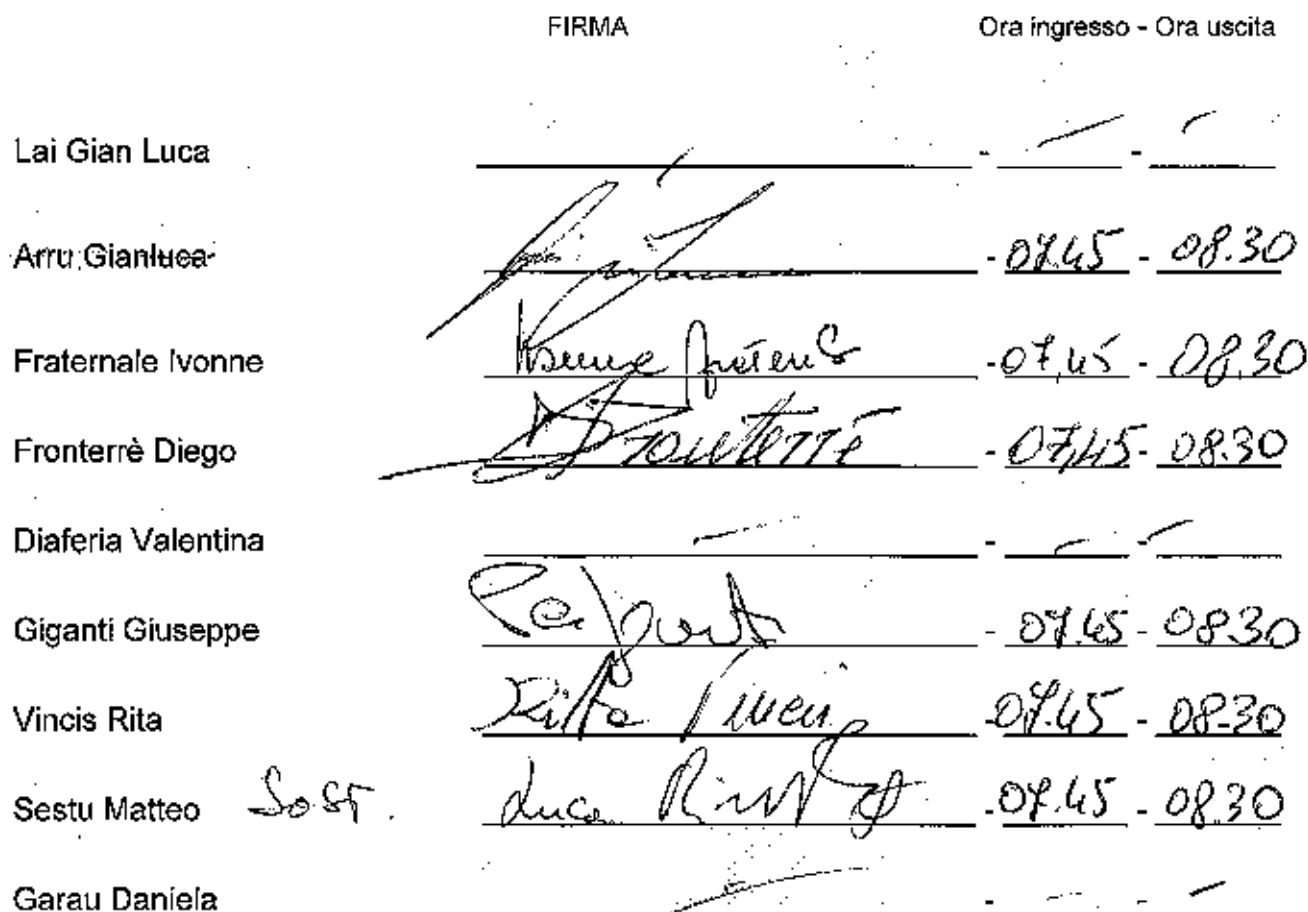 FIRMA Ora ingresso - Ora uscita
Lai Gian Luca - -
Arru Gianluca - 07.45 - 08.30
Fraternale Ivonne - 07,45 - 08,30
Fronterrè Diego Fronterrè - 07,45 - 08.30
Diaferia Valentina - -
Giganti Giuseppe - 07.45 - 08.30
Vincis Rita Rita Vincis - 07.45 - 08.30
Sestu Matteo Sost. Luca - 07.45 - 08.30
Garau Daniela - -